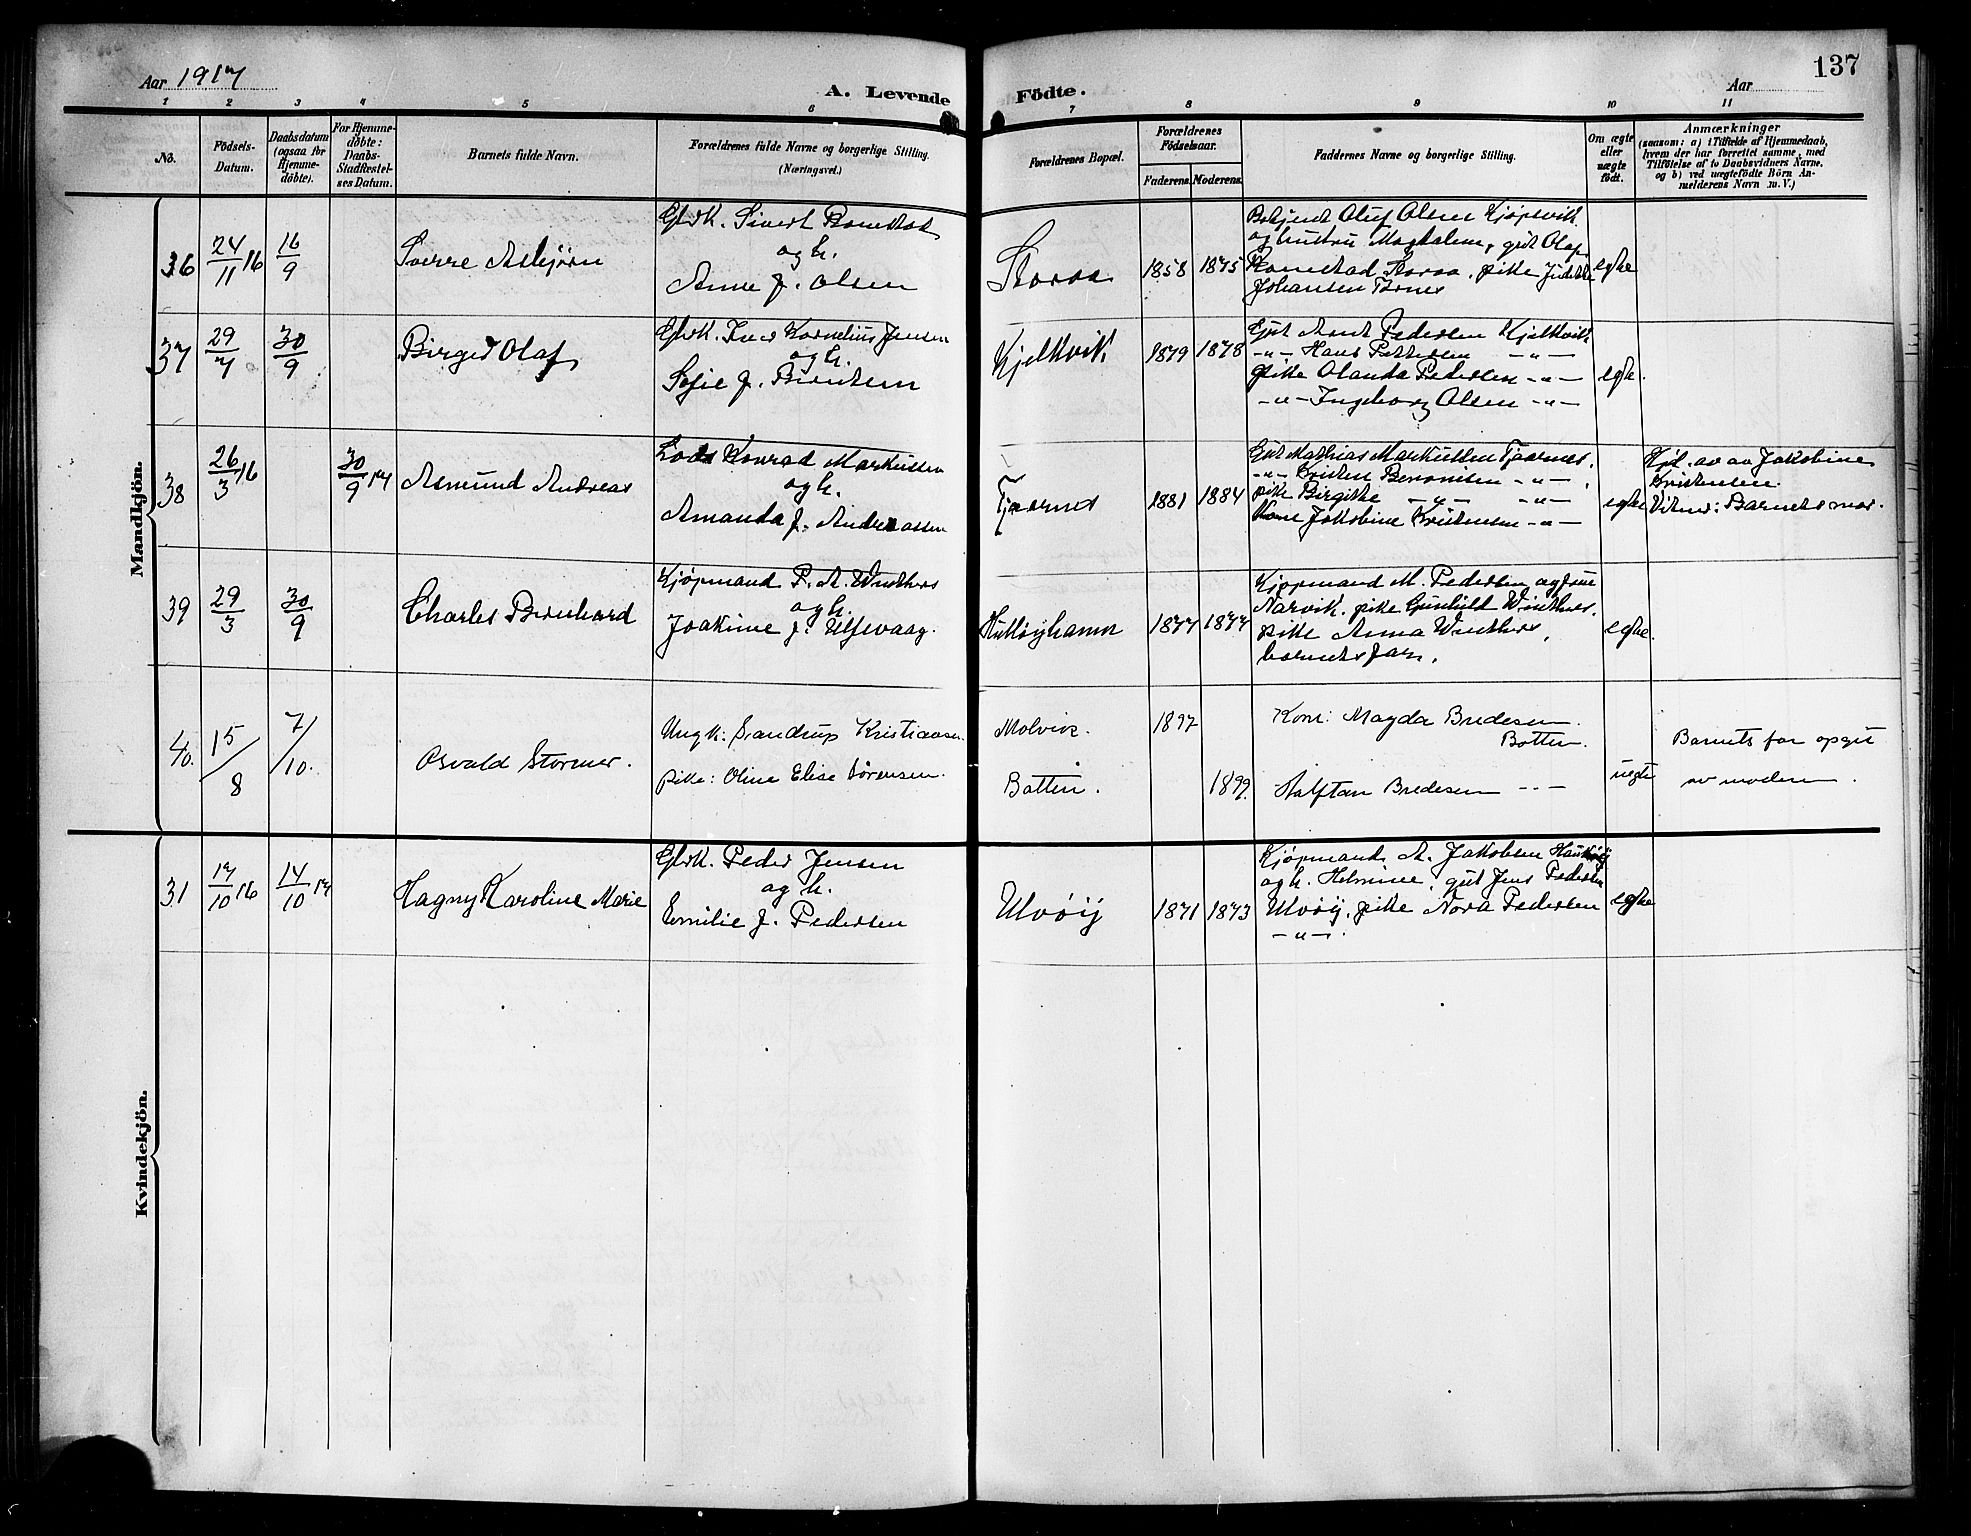 Aar 1917
A. Levende Födte.
137
Aar
1 2 3 4 5 6 7 8 9 10 11
No.
Födsels-Datum.
Daabsdatum (ogsaa for Hjemme-döbte).
For Hjemme-döbte: Daabs-Stadfæstel-ses Datum.
Barnets fulde Navn.
Forældrenes fulde Navne og borgerlige Stilling. (Næringsvei.)
Forældrenes Bopæl.
Forældrenes Födselsaar.
Faderens. Moderens.
Faddernes Navne og borgerlige Stilling.
Om ægte eller uægte födt.
Anmærkninger
(saasom: a) i Tilfælde af Hjemmedaab,
hvem der har forrettet samme, med
Tilföielse af to Daabsvidners Navne,
og b) ved uægtefödte Börn An-
melderens Navn m. V.)
Mandkjön.
36 24/11 16 16/9 Sverre Asbjörn
Gbrk. Sivert
og h.
Anne f. Olsen
Storaa 1858 1875
Oluf Olsen Kjøpsvik
og hustru Magdalene, gut Olaf
Storaa, pike
Johansen
egte
37 29/7 30/9 Birger Olaf
Gbrk. Kornelius Jensen
og h.
Sofie f. Berntsen
Kjelkvik 1879 1878
Gut Arnt Pedersen Kjelkvik
-"- Hans Pettersen -"-
pike Olanda Pedersen -"-
-"- Ingeborg Olsen -"-
egte.
38 26/3 16 30/9 17 Asmund Andreas
Konrad Markussen
og h.
Amanda f. Andreassen
Tjaernes 1881 1884
Gut Mathias Markussen Tjaernes.
-"- Kristen Beronisen -"-
pike Birgitte -"- -"-
Kone Jakobine Kristensen -"-
egte
av Jakobine
Kristensen.
Vitner: Barnets mor.
39 29/3 30/9 Charles Bernhard
Kjøpmand P. A. Winthers
og h.
Joakime f. Ulfsvaag.
1877 1877
Kjøpmand M. Pedersen og frue
Narvik. pike Gunhild Winthers.
pike Anna Winthers,
barnets far.
egte.
40. 15/8 7/10. Osvald Stormer.
Ungk: Sandrup Kristiansen.
pike: Oline Elise Sörensen.
Molvik. 1897
Botten. 1899.
Kone: Magda Bredesen
Botten.
Halftan Bredesen -"-
uegte
Barnets far opgit
av moderen.
Kvindekjön.
31 17/10 16 14/10 17 Hagny Karoline Marie
Gbrk. Peder Jensen
og h.
Emilie f. Pedersen
Ulvöij 1871 1873
Kjøpmand A. Jakobsen
og h. Helmine, gut Jens Pedersen
Ulvöij, pike Nora Pedersen
-"-.
egte